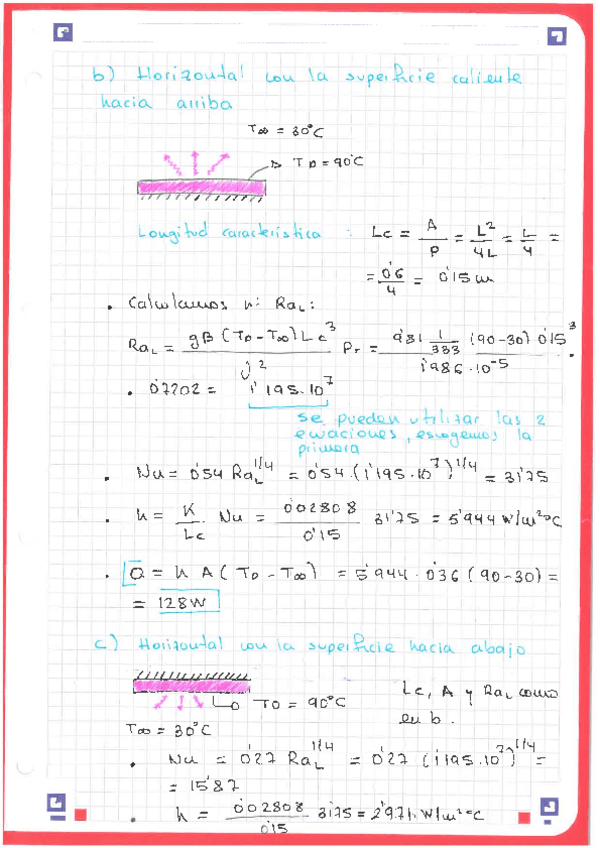 b) Horizontal con la superficie caliente
hacia arriba
T∞ = 30°C
To = 90°C
Longitud característica : Lc = A/P = L²/4L = L/4 =
= 0'6/4 = 0'15 m
• Calculamos nº RaL:
RaL = gβ (To - T∞) Lc³ / ν² Pr = 9'81 1/333 (90-30) 0'15³ / 1'986·10⁻⁵ ·
• 0'7202 = 1'195·10⁷
se pueden utilizar las 2
ecuaciones, escogemos la
primera
• Nu = 0'54 RaL^1/4 = 0'54·(1'195·10⁷)^1/4 = 31'75
• h = K/Lc Nu = 0'02808/0'15 31'75 = 5'944 W/m²°C
• Q = h A (To - T∞) = 5'944·0'36 (90-30) =
= 128W
c) Horizontal con la superficie hacia abajo
Lc, A y RaL como
en b.
To = 90°C
T∞ = 30°C
• Nu = 0'27 RaL^1/4 = 0'27 (1'195·10⁷)^1/4 =
= 15'87
• h = 0'02808/0'15 31'75 = 2'971 W/m²°C